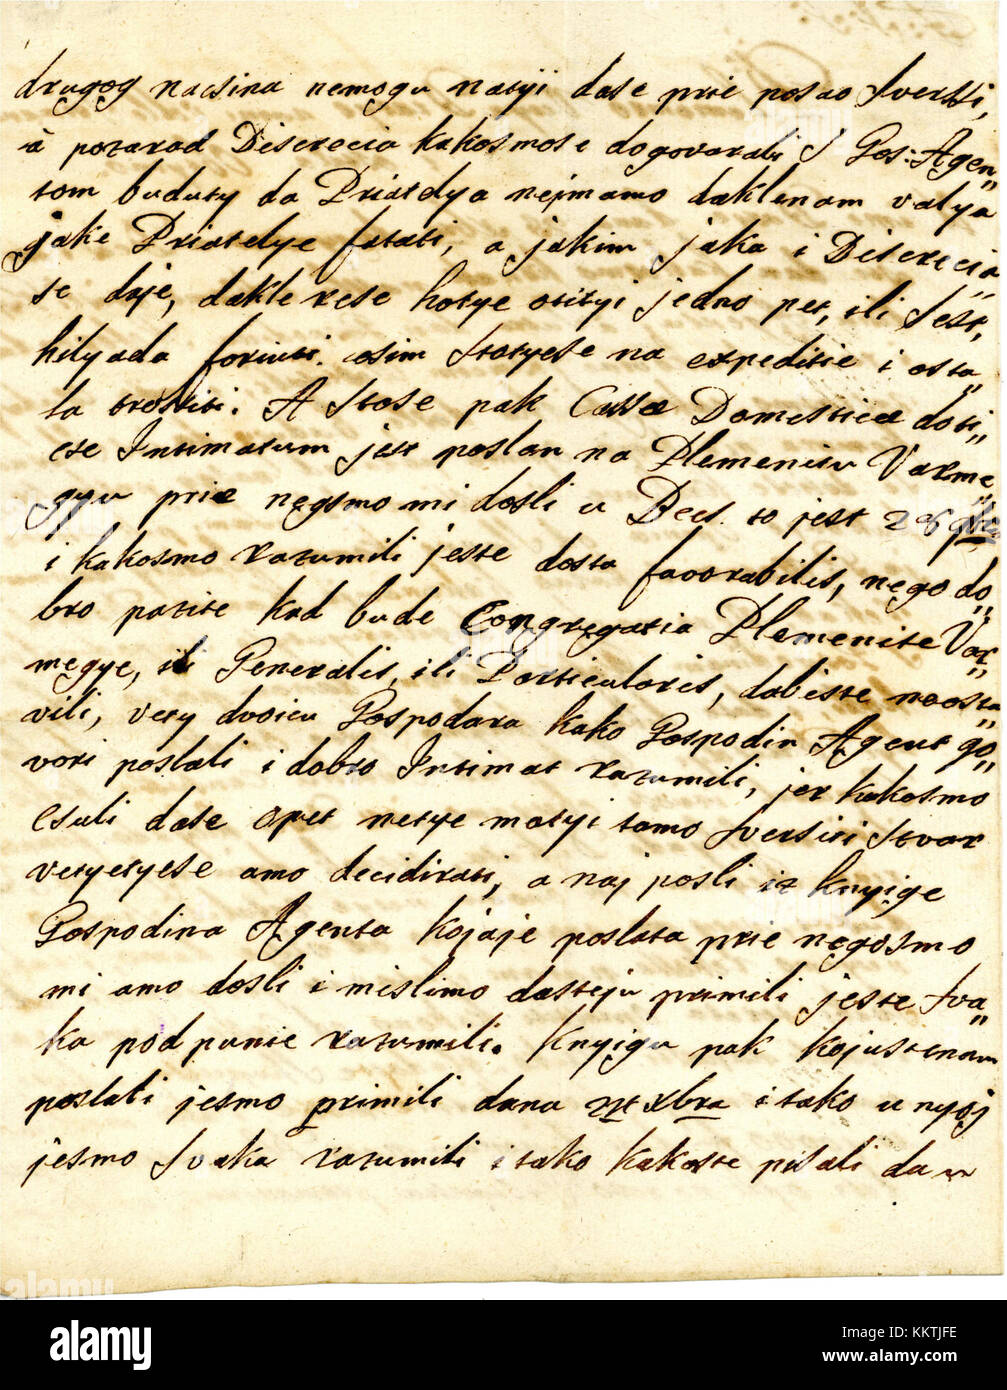 drugog nacsina nemogu natyi dase prie posao Svershi,
à pozarad Discrecia kakosmose dogovarali S Gos: Agen„
tom buduty da Priatelya nejmamo daklenam valya
jake Priatelye fatati, a jakim jaka i Discrecia
se daje, dakle xese hotye otityi jedno pet, ili Sest,
hilyada forinti. osim Stotyese na expeditie i osta„
la trositi. A Stose pak Cassæ Domesticæ doti„
cse Intimatum jest poslan na Plemenitu Varme„
gyu prie negsmo mi dosli u Becs. to jest 26
i kakosmo razumili jeste dosta favorabilis, nego do„
bro pazite kad bude Congregatia Plemenite Var„
megye, ili Generalis, ili Particularis, dabiste naosta„
vili, vety dvoicu Gospodara kako Gospodin Agent go„
vori poslali i dobro Intimat razumili, jer kakosmo
csuli dase opet netye matyi tamo Sversiti Stvar
vetyetyese amo decidirati, a naj posli iz knyige
Gospodina Agenta kojaje poslata prie negosmo
mi amo dosli i mislimo dasteju primili jeste Sva„
ka pod punie razumili. Knyigu pak kojustenam
poslali jesmo primili dana 22t xbra i tako u nyoj
jesmo Svaka razumili i tako kakoste pisali da
alamy
alamy
alamy
alamy
Image ID: KKTJFE
www.alamy.com